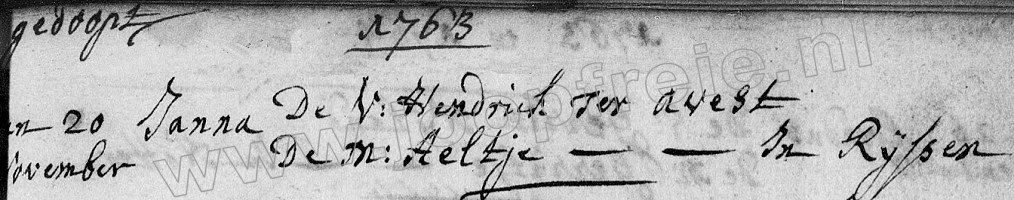 gedoopt 1763
en 20 Janna De V: Hendrick Ter avest
November De M: Aeltje — — In Ryssen
www.joopfreje.nl